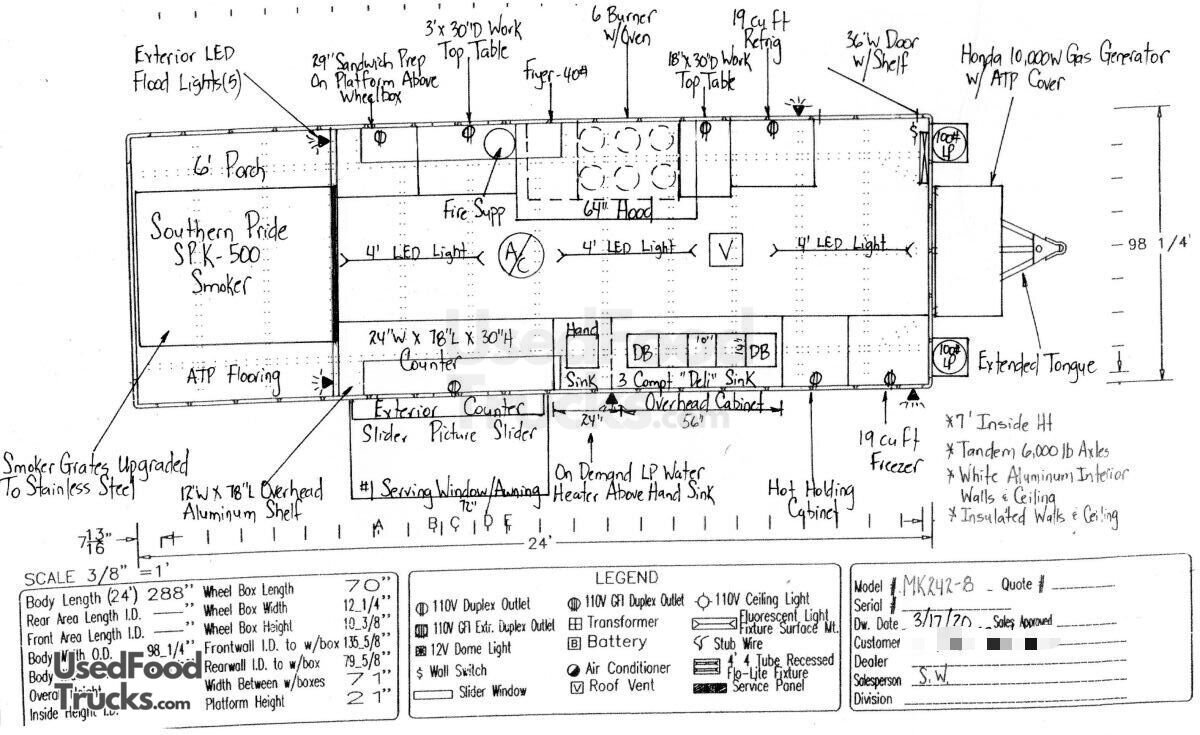 Exterior LED
Flood Lights(5)
29" Sandwich Prep
On Platform Above
Wheelbox
3'x 30"D Work
Top Table
Fryer-40#
6 Burner
w/Oven
18"x30"D Work
Top Table
19 cu ft
Refrig
36"W Door
w/Shelf
Honda 10,000w Gas Generator
w/ ATP Cover
100#
LP
6' Porch
Southern Pride
SPK-500
Smoker
ATP Flooring
Fire Supp
64" Hood
4' LED Light
A/C
4' LED Light
V
4' LED Light
98 1/4"
24"W x 78"L x 30"H
Counter
Hand
Sink
DB
10"
DB
3 Compt "Deli" Sink
100#
LP
Extended Tongue
Exterior Counter
Slider Picture Slider
24"
Overhead Cabinet
56"
#1 Serving Window/Awning
72"
On Demand LP Water
Heater Above Hand Sink
Hot Holding
Cabinet
19 cu ft
Freezer
*7' Inside Ht
* Tandem 6,000 lb Axles
* White Aluminum Interior
Walls & Ceiling
* Insulated Walls & Ceiling
Smoker Grates Upgraded
To Stainless Steel
12"W x 78"L Overhead
Aluminum Shelf
UsedFood
Trucks.com
A B C D E
7 13/16"
24'
SCALE 3/8" = 1'
Body Length (24') 288"
Rear Area Length I.D. —"
Front Area Length I.D. —"
Body Width O.D. 98 1/4"
Body
Overall Height
Inside Height I.D.
Wheel Box Length 70"
Wheel Box Width 12 1/4"
Wheel Box Height 10 3/8"
Frontwall I.D. to w/box 135 5/8"
Rearwall I.D. to w/box 79 5/8"
Width Between w/boxes 71"
Platform Height 21"
UsedFood
Trucks.com
LEGEND
110V Duplex Outlet
110V GFI Extr. Duplex Outlet
12V Dome Light
$ Wall Switch
Slider Window
110V GFI Duplex Outlet
Transformer
B Battery
Air Conditioner
V Roof Vent
110V Ceiling Light
Fluorescent Light
Fixture Surface Mt.
Stub Wire
4' 4 Tube Recessed
Flo-Lite Fixture
Service Panel
Model # MK242-8 Quote #
Serial #
Dw. Date 3/17/20 Sales Approved
Customer
Dealer
Salesperson S.W.
Division